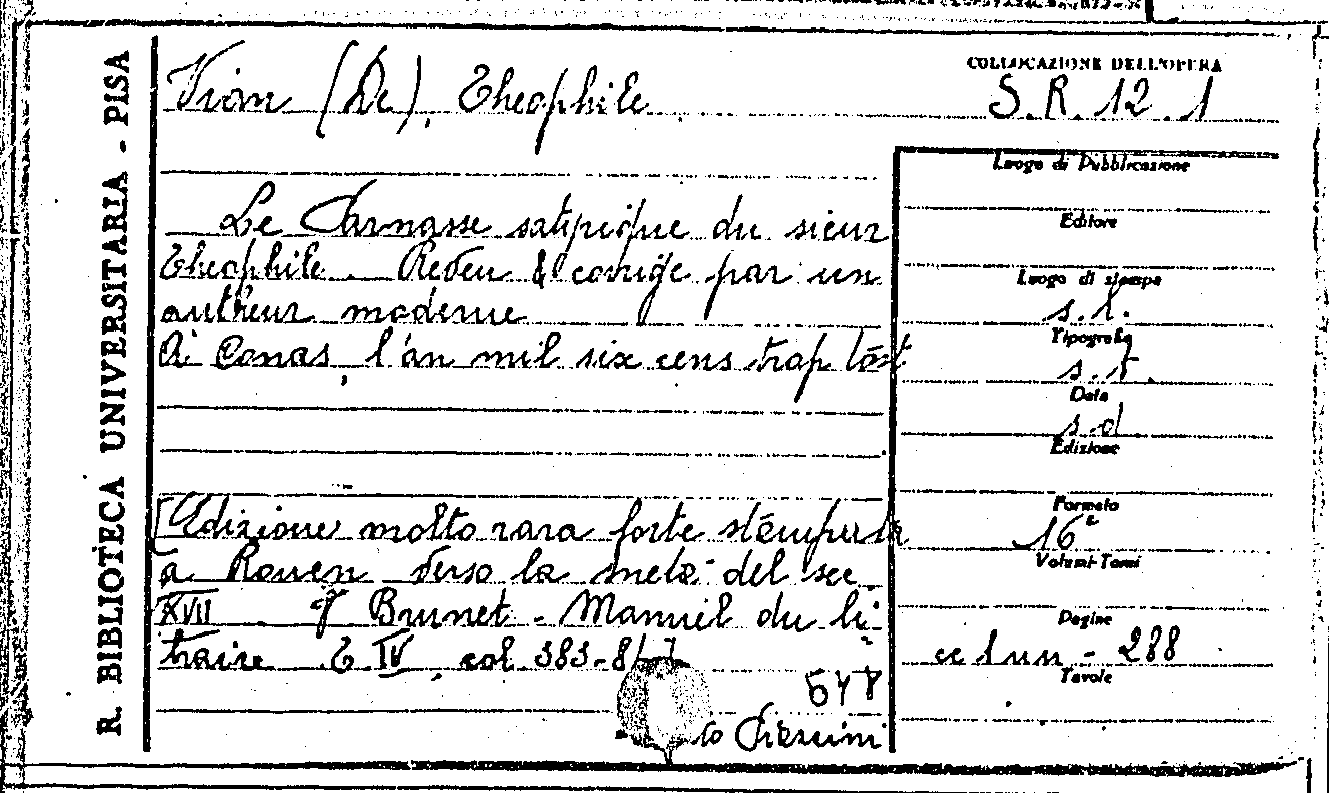 R. BIBLIOTECA UNIVERSITARIA - PISA
Vian (De), Theophile
COLLOCAZIONE DELL'OPERA
S.R. 12.1
Le Parnasse satyrique du sieur
Theophile. Reveu & corrigé par un
autheur moderne
A Conas, l'an mil six cens trop tôst
[Edizione molto rara forse stampata
a Rouen verso la metà del sec
XVII cf Brunet - Manuel du li-
braire T IV, col 383-84]
578
Luogo di Pubblicazione
Editore
Luogo di stampa
s.l.
Tipografia
s.t.
Data
s.d
Edizione
Formato
16°
Volumi-Tomi
Pagine
cc 1 nn - 288
Tavole